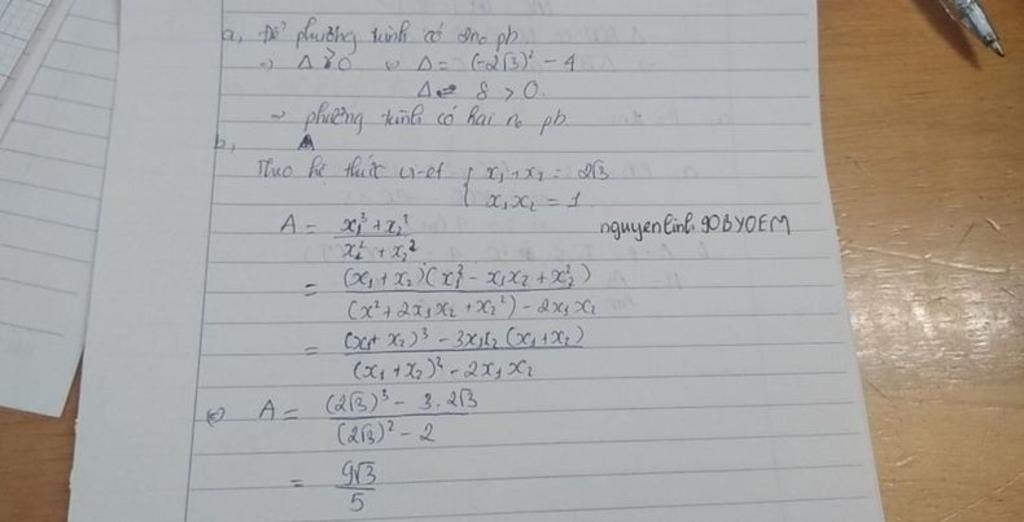 a, Để phương trình có 2no pb
=> Δ > 0 <=> Δ = (-2√3)² - 4
Δ = 8 > 0.
=> phương trình có hai no pb.
b,
Theo hệ thức vi-et { x₁ + x₂ = 2√3
x₁x₂ = 1
A = (x₁³ + x₂³) / (x₁² + x₂²)
nguyenlinh.90BYOEM
= (x₁ + x₂)(x₁² - x₁x₂ + x₂²) / (x² + 2x₁x₂ + x₂²) - 2x₁x₂
= (x₁ + x₂)³ - 3x₁x₂ (x₁ + x₂) / (x₁ + x₂)² - 2x₁x₂
<=> A = (2√3)³ - 3.2√3 / (2√3)² - 2
= 9√3 / 5